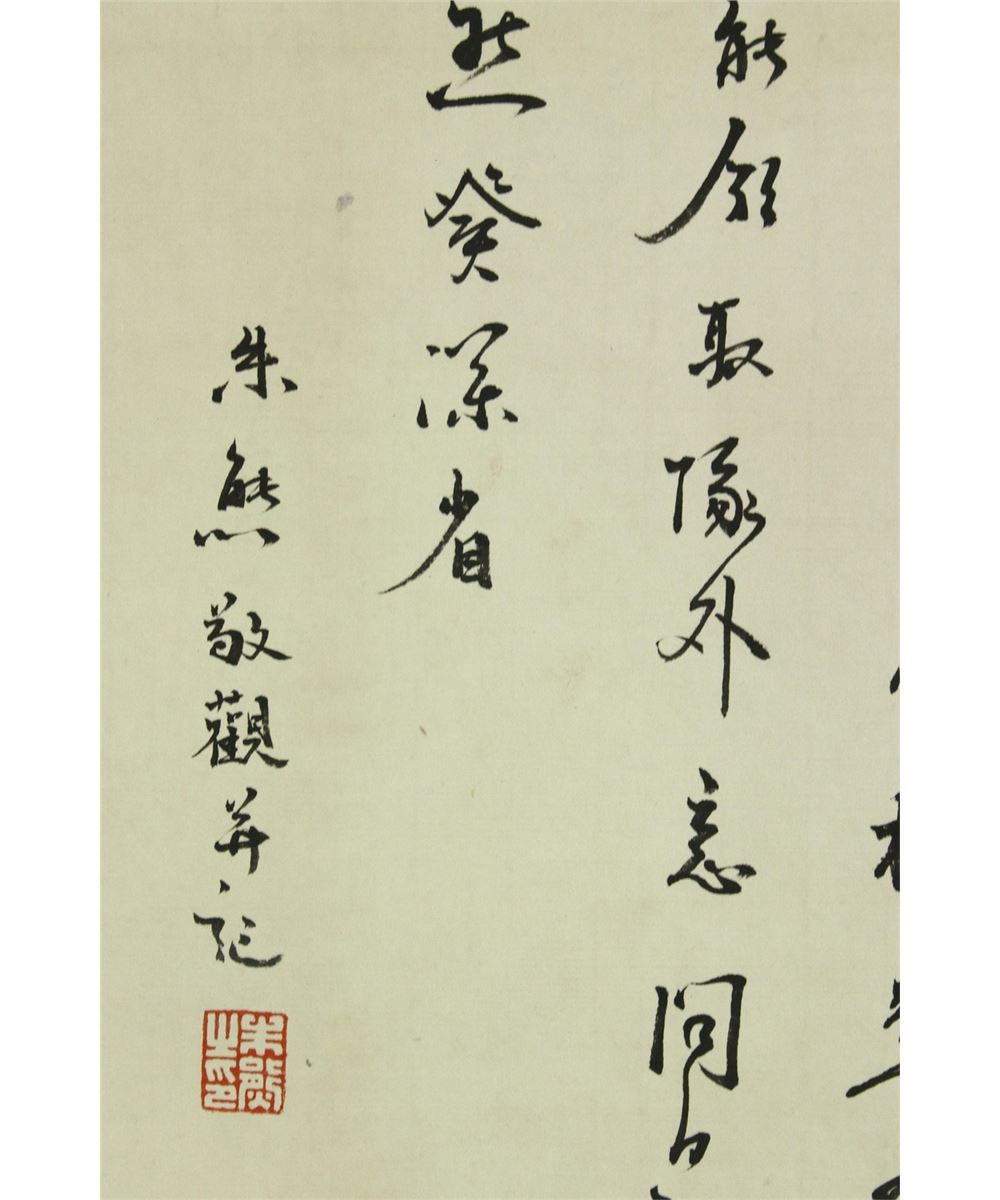 能領取隊外意問
然發深省
朱熊敬觀並記
朱熊之印